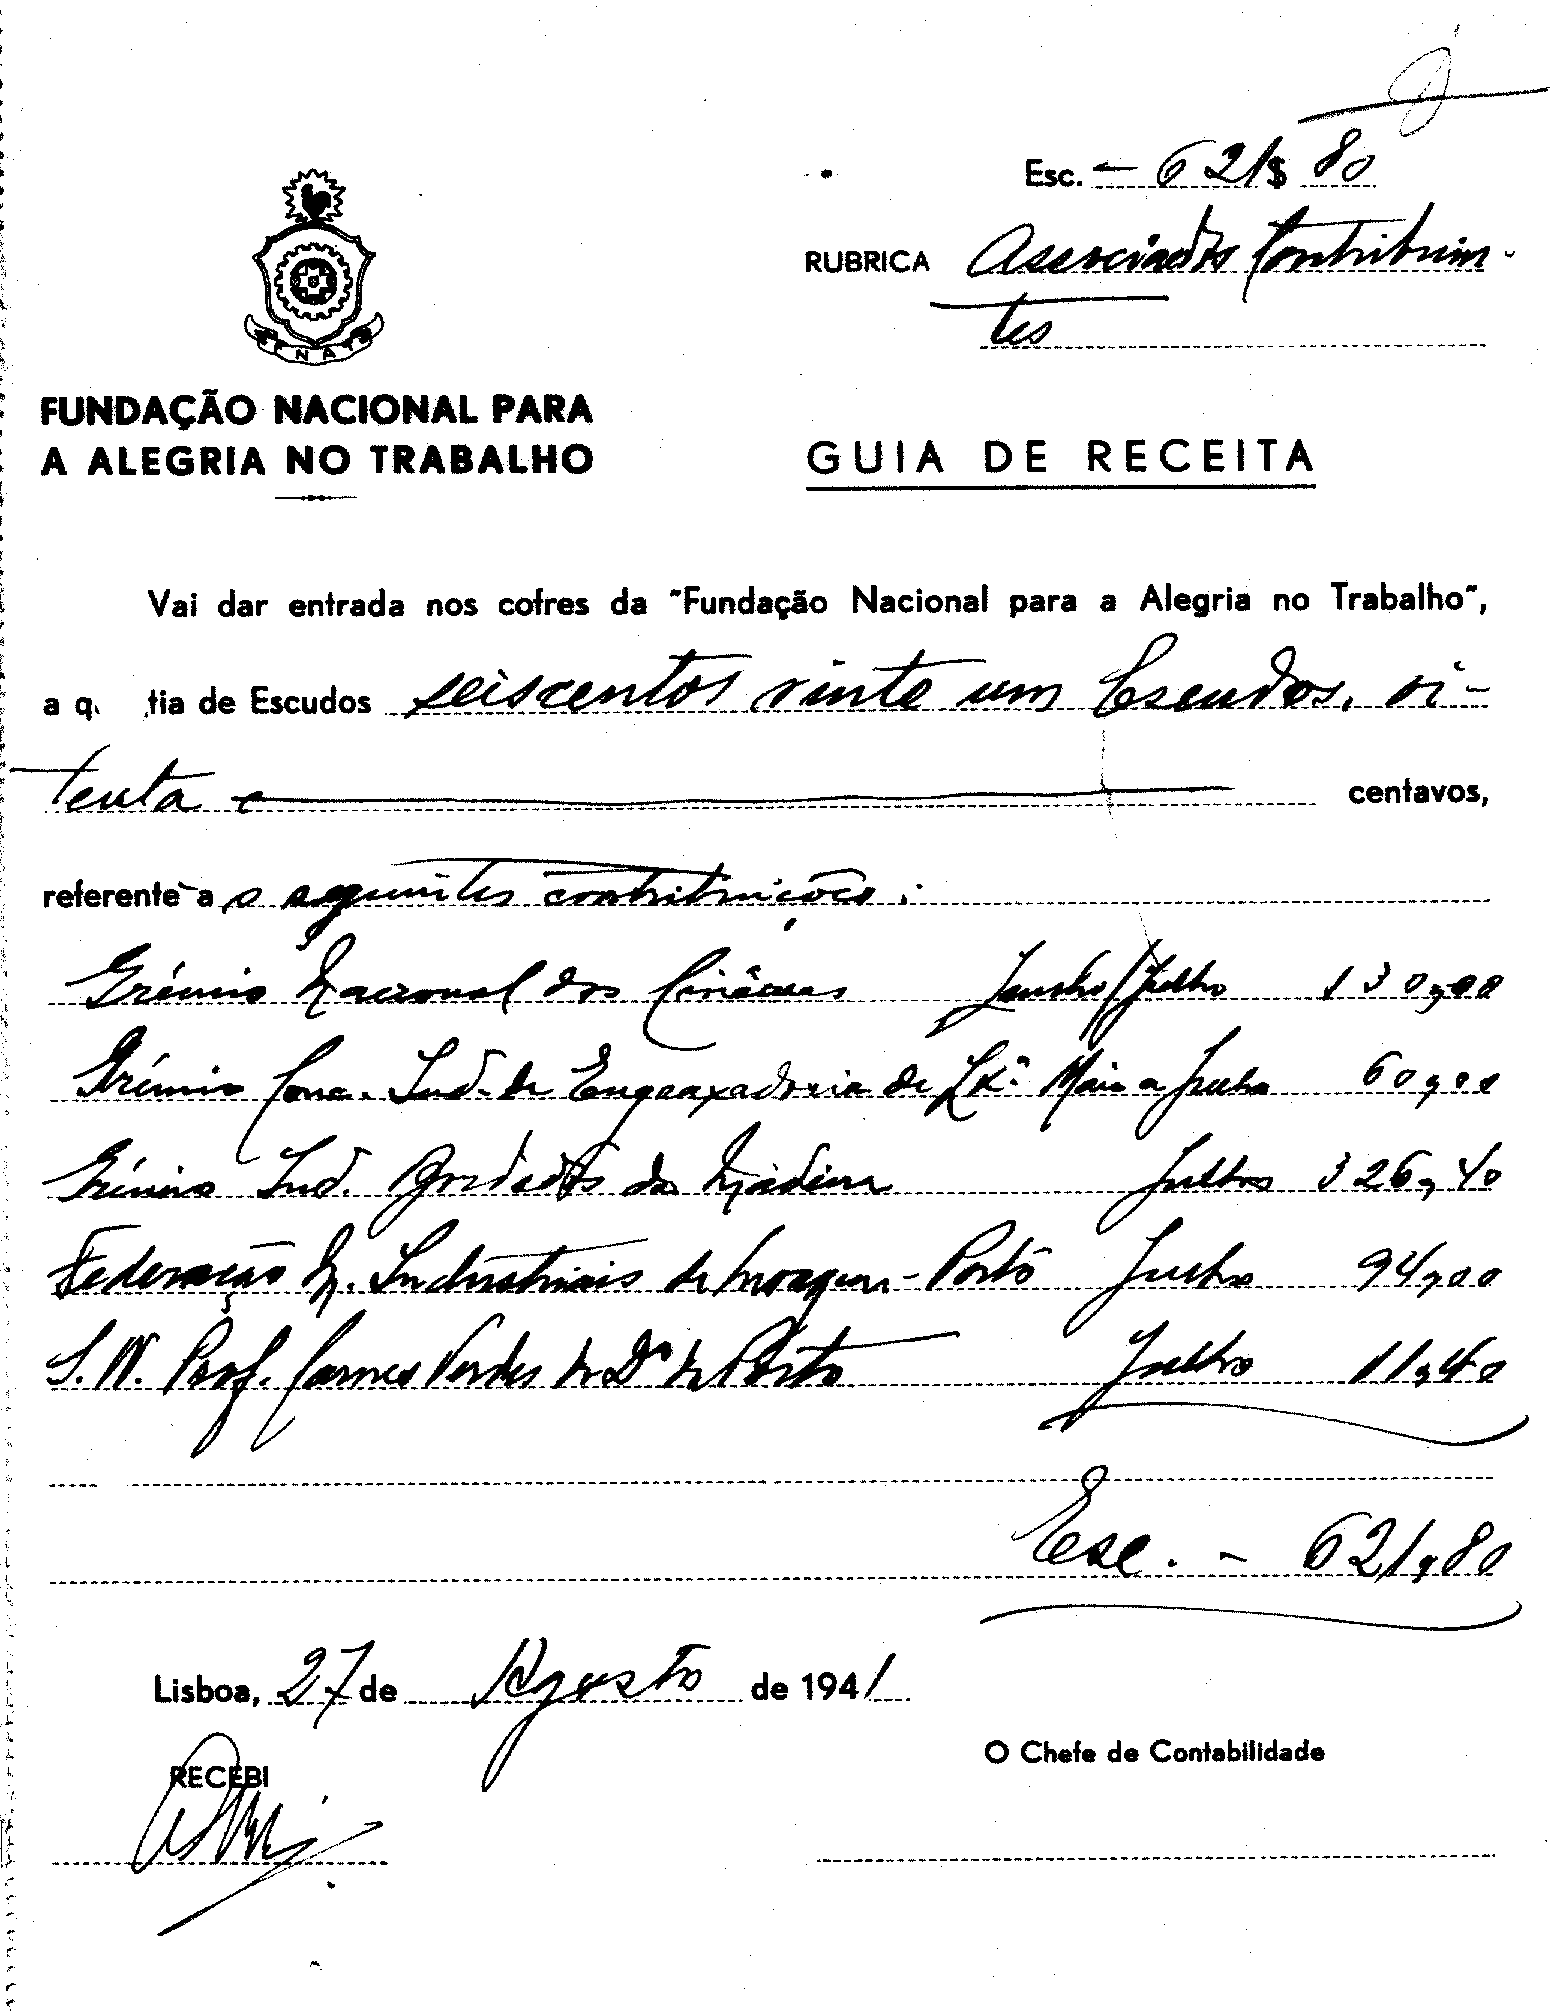 Esc. — 621$80
RUBRICA Associados Contribuin-
tes
FNAT
FUNDAÇÃO NACIONAL PARA
A ALEGRIA NO TRABALHO
GUIA DE RECEITA
Vai dar entrada nos cofres da "Fundação Nacional para a Alegria no Trabalho",
a q tia de Escudos seiscentos vinte um Escudos, oi-
tenta centavos,
referente a s seguintes contribuições:
Grémio Nacional dos Cinêmas Junho/Julho 130,00
Grémio Conc. Ind. de Engraxadoria de Lxª. Maio a Julho 60,00
Grémio Ind. Bordados da Madeira Julho 326,40
Federação N. Industriais de Moagem - Porto Julho 94,00
S. N. Prof. Carnes Verdes do Dº do Porto Julho 11,40
Esc. - 621,80
Lisboa, 27 de Agosto de 1941
RECEBI
O Chefe de Contabilidade